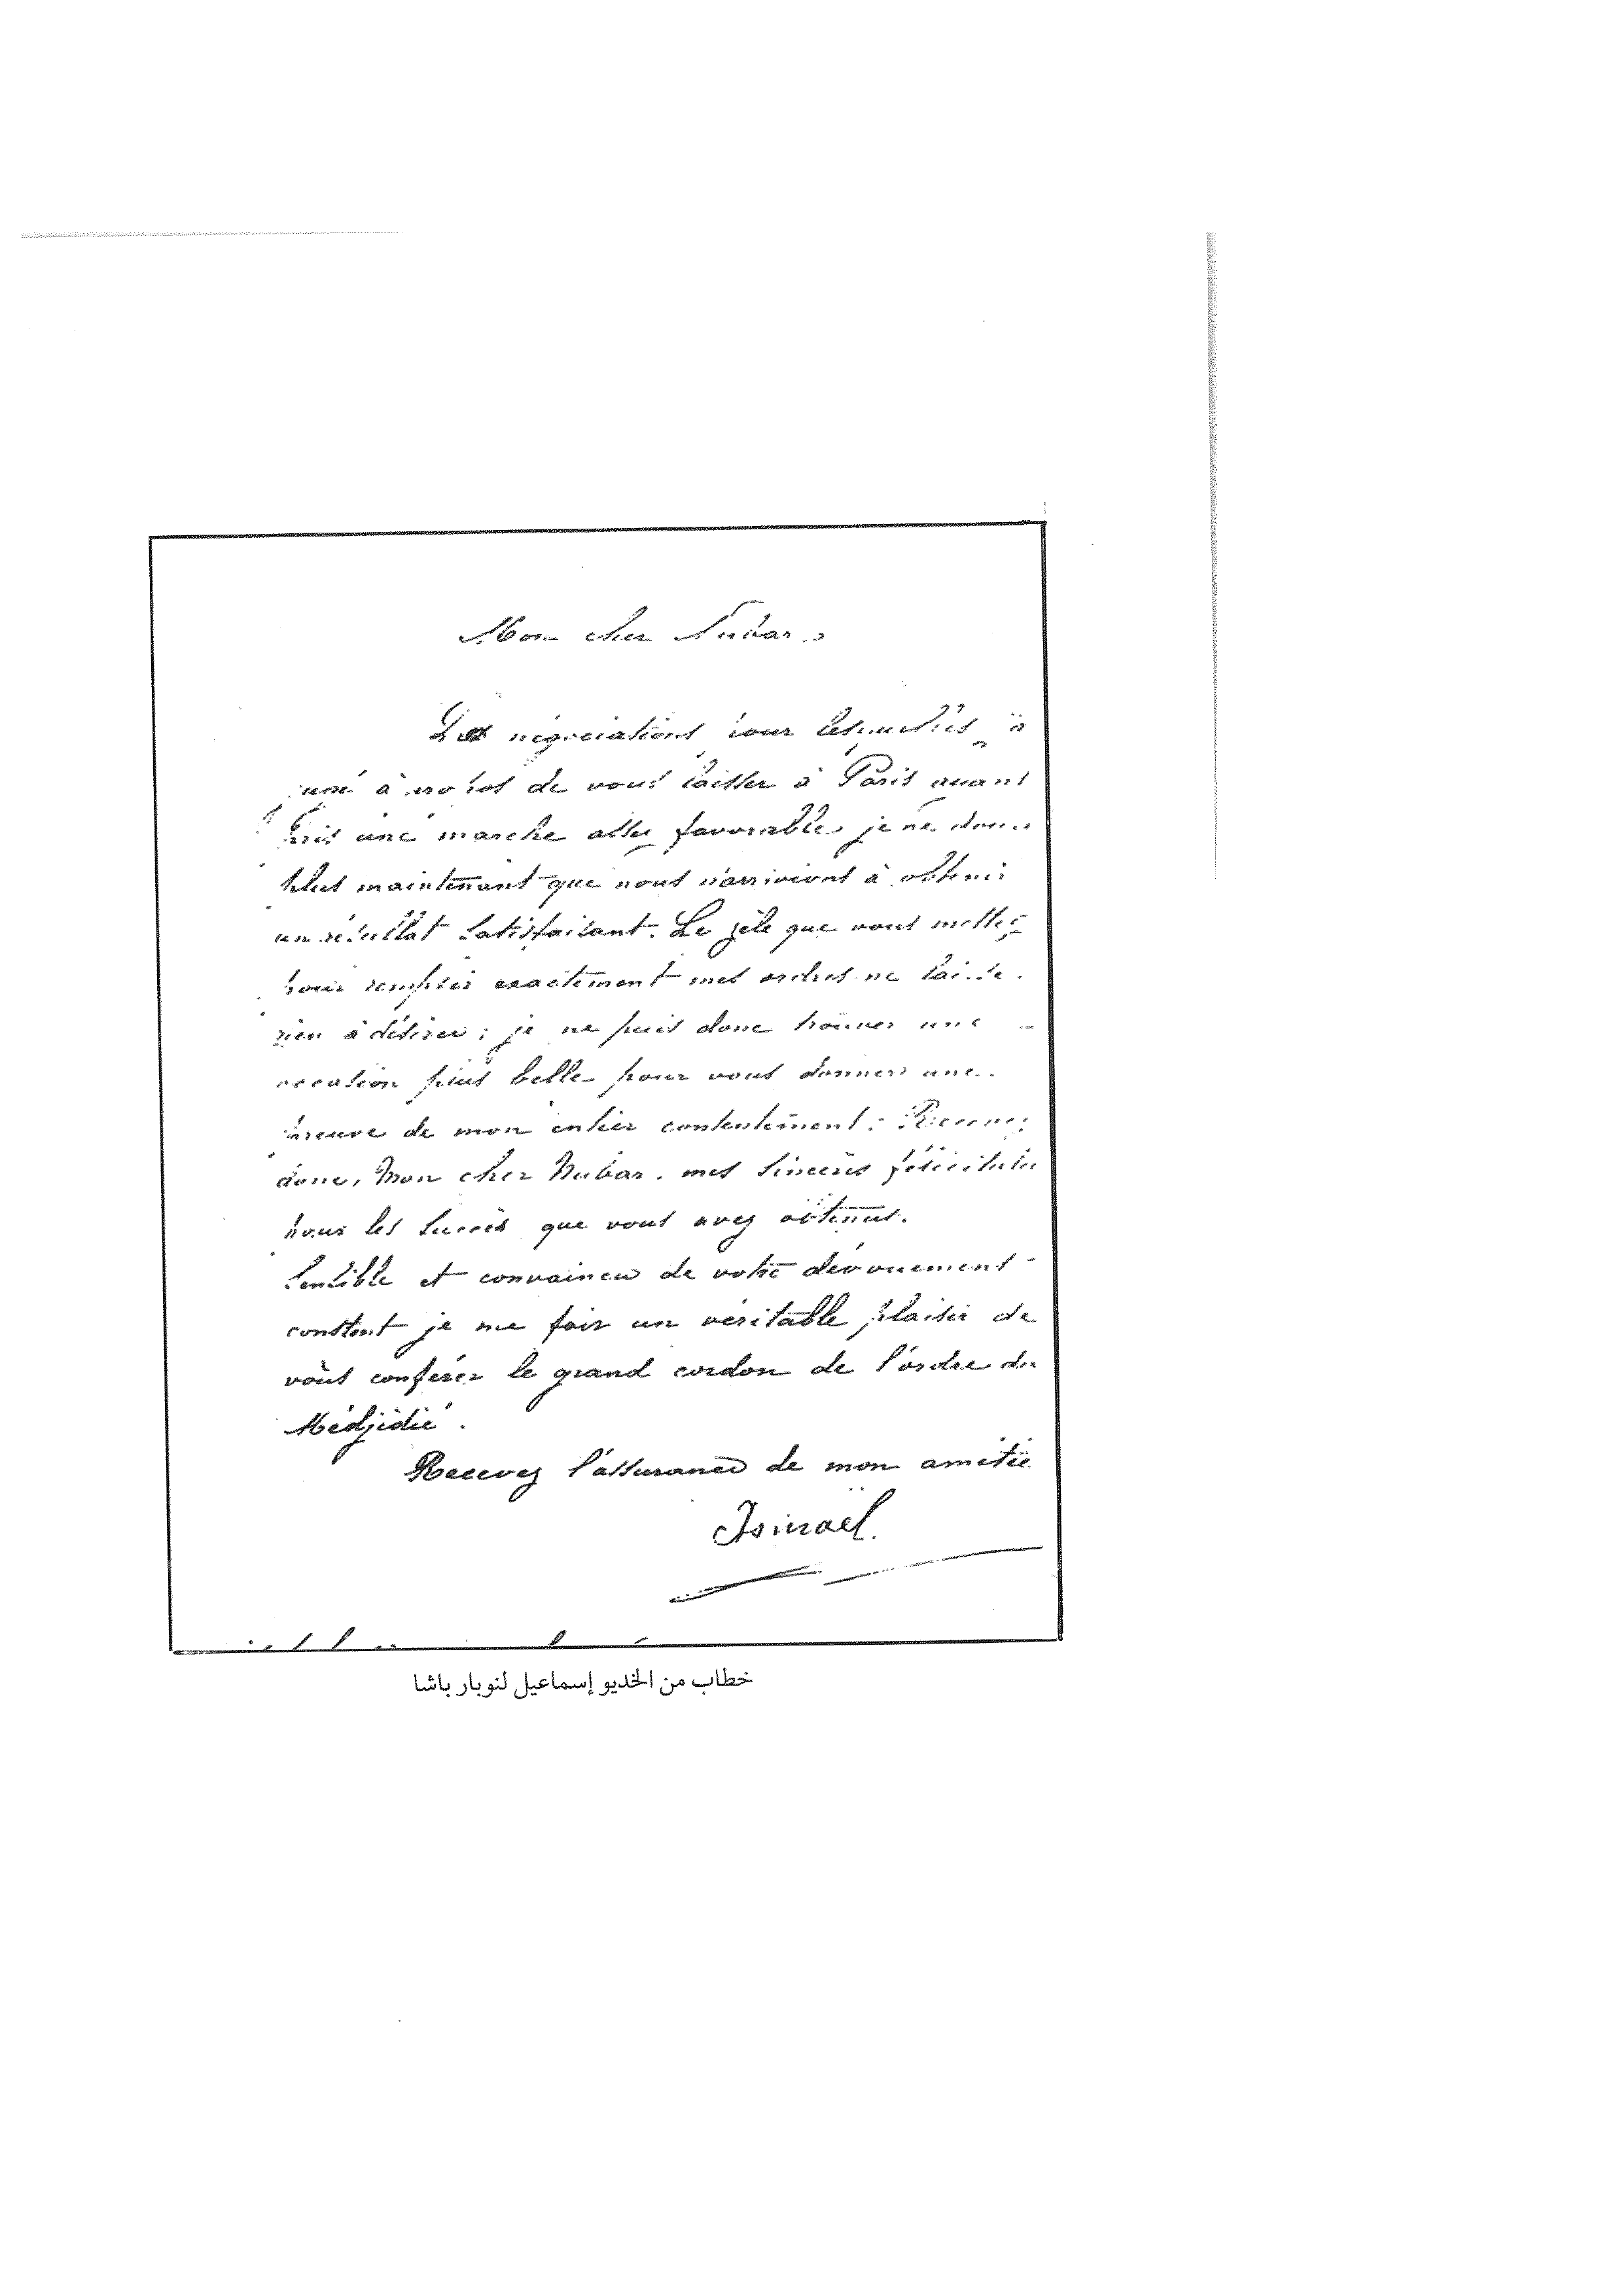 Mon cher Nubar,
Les négociations pour lesquelles j'ai
jugé à propos de vous laisser à Paris ayant
pris une marche assez favorable, je ne doute
plus maintenant que nous n'arrivions à obtenir
un résultat satisfaisant. Le zèle que vous mettez
pour remplir exactement mes ordres ne laisse
rien à désirer; je ne puis donc trouver une
occasion plus belle pour vous donner une
preuve de mon entier contentement. Recevez
donc, Mon cher Nubar, mes sincères félicitations
pour les succès que vous avez obtenus.
Sensible et convaincu de votre dévouement
constant je me fais un véritable plaisir de
vous conférer le grand cordon de l'ordre du
Médjidié.
Recevez l'assurance de mon amitié
Ismaël.
خطاب من الخديو إسماعيل لنوبار باشا